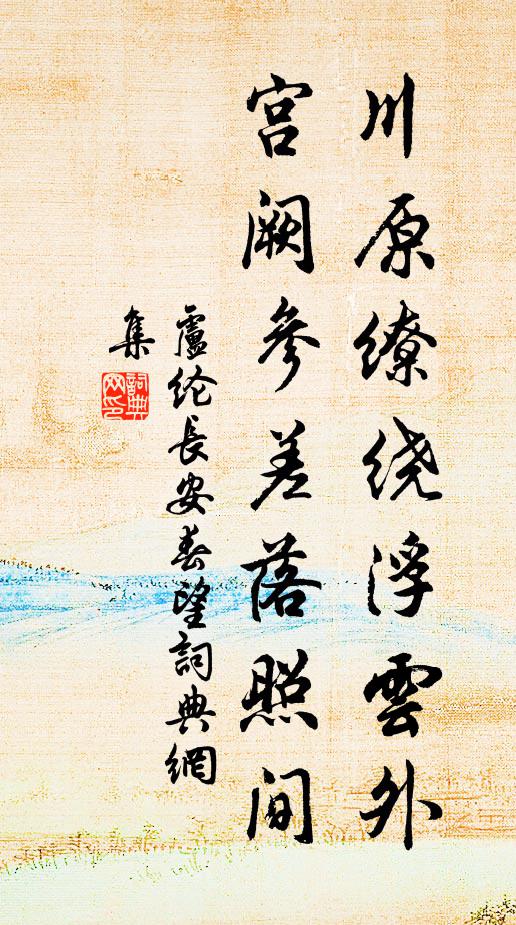 川原缭绕浮雲外
宫阙参差落照间
盧纶長安春望詞典網
集
詞典網印